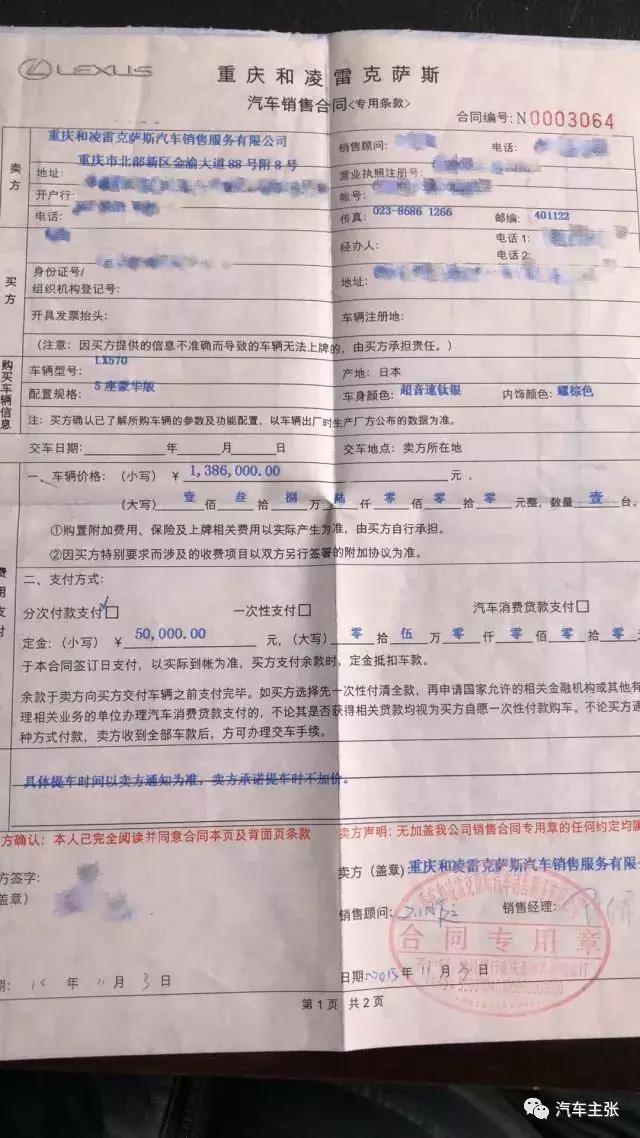 LEXUS
重庆和凌雷克萨斯
汽车销售合同<专用条款>
合同编号: N0003064
卖方
重庆和凌雷克萨斯汽车销售服务有限公司
重庆市北部新区金渝大道88号附8号
地址:
开户行:
电话:
销售顾问: 电话:
营业执照注册号:
帐号:
传真: 023-8686 1266 邮编: 401122
买方
身份证号/
组织机构登记号:
经办人: 电话1:
电话2:
地址:
开具发票抬头: 车辆注册地:
(注意: 因买方提供的信息不准确而导致的车辆无法上牌的, 由买方承担责任。)
购买车辆信息
车辆型号: LX570 产地: 日本
配置规格: 5座豪华版 车身颜色: 超音速钛银 内饰颜色: 耀棕色
注: 买方确认已了解所购车辆的参数及功能配置, 以车辆出厂时生产厂方公布的数据为准。
交车日期: 年 月 日 交车地点: 卖方所在地
费用支付
一、车辆价格: (小写) ¥ 1,386,000.00 元,
(大写) 壹 佰 叁 拾 捌 万 陆 仟 零 佰 零 拾 零 元整, 数量 壹 台。
①购置附加费用、保险及上牌相关费用以实际产生为准, 由买方自行承担。
②因买方特别要求而涉及的收费项目以双方另行签署的附加协议为准。
二、支付方式:
分次付款支付☐ 一次性支付☐ 汽车消费贷款支付☐
定金: (小写) ¥ 50,000.00 元, (大写) 零 拾 伍 万 零 仟 零 佰 零 拾 零
于本合同签订日支付, 以实际到帐为准, 买方支付余款时, 定金抵扣车款。
余款于卖方向买方交付车辆之前支付完毕。如买方选择先一次性付清全款, 再申请国家允许的相关金融机构或其他有
理相关业务的单位办理汽车消费贷款支付的, 不论其是否获得相关贷款均视为买方自愿一次性付款购车。不论买方通
种方式付款, 卖方收到全部车款后, 方可办理交车手续。
具体提车时间以卖方通知为准, 卖方承诺提车时不加价。
方确认: 本人已完全阅读并同意合同本页及背面页条款 卖方声明: 无加盖我公司销售合同专用章的任何约定均属
方签字:
盖章)
卖方 (盖章): 重庆和凌雷克萨斯汽车销售服务有限公
销售顾问: 销售经理:
合同专用章
期: 15 年 11 月 3 日
日期: 2015 年 11 月 3 日
第1页 共2页
汽车主张